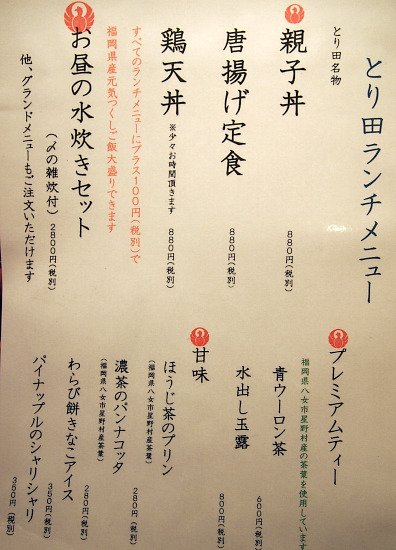 とり田ランチメニュー
とり田名物
親子丼
880円(税別)
唐揚げ定食
880円(税別)
鶏天丼
※少々お時間頂きます
880円(税別)
すべてのランチメニューにプラス100円(税別)で
福岡県産元気つくしご飯大盛りできます
お昼の水炊きセット
(〆の雑炊付)
2800円(税別)
他、グランドメニューもご注文いただけます
プレミアムティー
福岡県八女市星野村産の茶葉を使用しています
青ウーロン茶
600円(税別)
水出し玉露
800円(税別)
甘味
ほうじ茶のプリン
(福岡県八女市星野村産茶葉)
280円(税別)
濃茶のパンナコッタ
(福岡県八女市星野村産茶葉)
280円(税別)
わらび餅きなこアイス
350円(税別)
パイナップルのシャリシャリ
350円(税別)